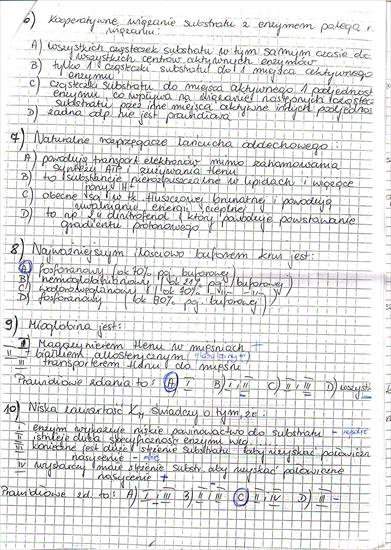 6) Kooperatywne wiązanie substratu z enzymem polega na
wiązaniu:
A) wszystkich cząsteczek substratu w tym samym czasie do
wszystkich centrów aktywnych enzymów
B) tylko 1 cząsteczki substratu do 1 miejsca aktywnego
enzymu
C) cząsteczki substratu do miejsca aktywnego 1 podjednost
enzymu, co wpływa na wiązanie następnych cząstecz
substratu przez inne miejsca aktywne innych podjednos
D) żadna odp. nie jest prawdziwa
7) Naturalne rozprzęgacze łańcucha oddechowego:
A) powodują transport elektronów mimo zahamowania
syntezy ATP i zużywania tlenu
B) to substancje nierozpuszczalne w lipidach i wiążące
jony H+
C) obecne są w tk. tłuszczowej brunatnej i powodują
uwalnianie energii cieplnej
D) to np. 2,4 dinitrofenol, który powoduje powstawanie
gradientu protonowego
8) Najważniejszym ilościowo buforem krwi jest:
A) fosforanowy (ok 70% poj. buforowej)
B) hemoglobinianowy (ok 21% poj. buforowej)
C) wodorowęglanowy (ok 70% -||- -||-)
D) fosforanowy (ok 80% poj. buforowej)
9) Mioglobina jest:
I Magazynierem tlenu w mięśniach +
II białkiem allosterycznym
III transporterem tlenu do mięśni
Prawdziwe zdania to: A) I B) I i II C) II i III D) wszyst
10) Niska zawartość KM świadczy o tym, że:
I enzym wykazuje niskie powinowactwo do substratu -
II istnieje duża specyficzność enzymu
III konieczne jest duże stężenie substratu aby uzyskać połowiczn
nasycenie -
IV wystarczy małe stężenie substr. aby uzyskać połowiczne
nasycenie +
Prawdziwe zd. to: A) I i III B) II i III C) II i IV D) III